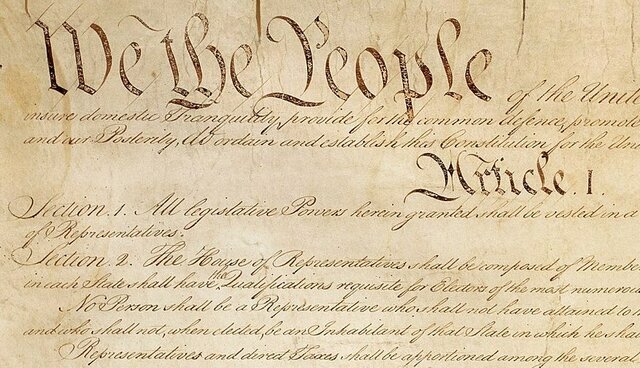 We the People of the Unit
insure domestic Tranquility, provide for the common defence, promote
and our Posterity, do ordain and establish this Constitution for the Uni
Article. I.
Section. 1. All legislative Powers herein granted shall be vested in a
of Representatives.
Section. 2. The House of Representatives shall be composed of Member
in each State shall have the Qualifications requisite for Electors of the most numerou
No Person shall be a Representative who shall not have attained to
and who shall not, when elected, be an Inhabitant of that State in which he sha
Representatives and direct Taxes shall be apportioned among the several